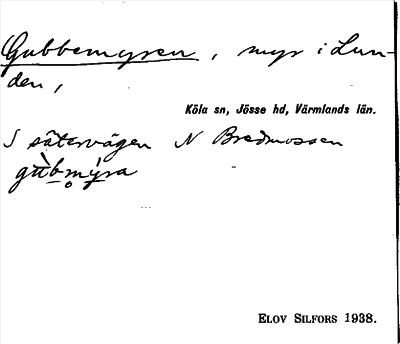 Gubbemyren, myr i Lun-
den,
Köla sn, Jösse hd, Värmlands län.
S sätervägen N Bredmossen
gu̇̀bmýra
ELOV SILFORS 1938.